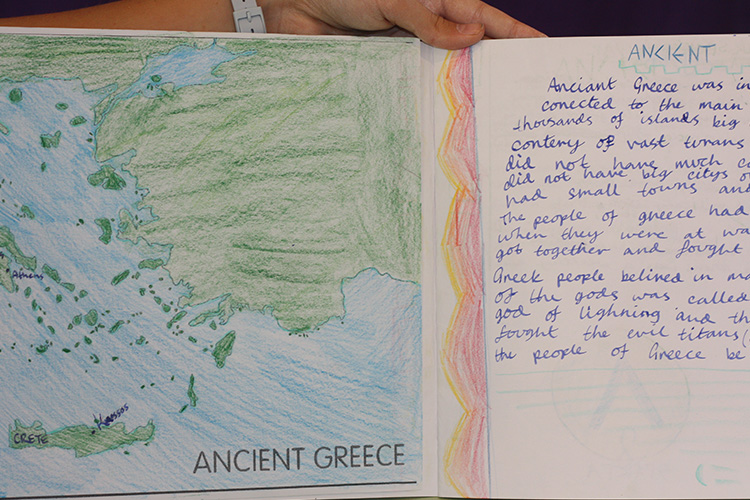 Athens
Knossos
CRETE
ANCIENT GREECE
ANCIENT
Anciant Greece was in
conected to the main
thousands of islands big
contery of vast
did not have much
did not have big citys
had small towns and
The people of greece had
when they were at
got together and fought
Greek people belived in
of the gods was called
god of lighning and
fought the evil titans
the people of Greece be